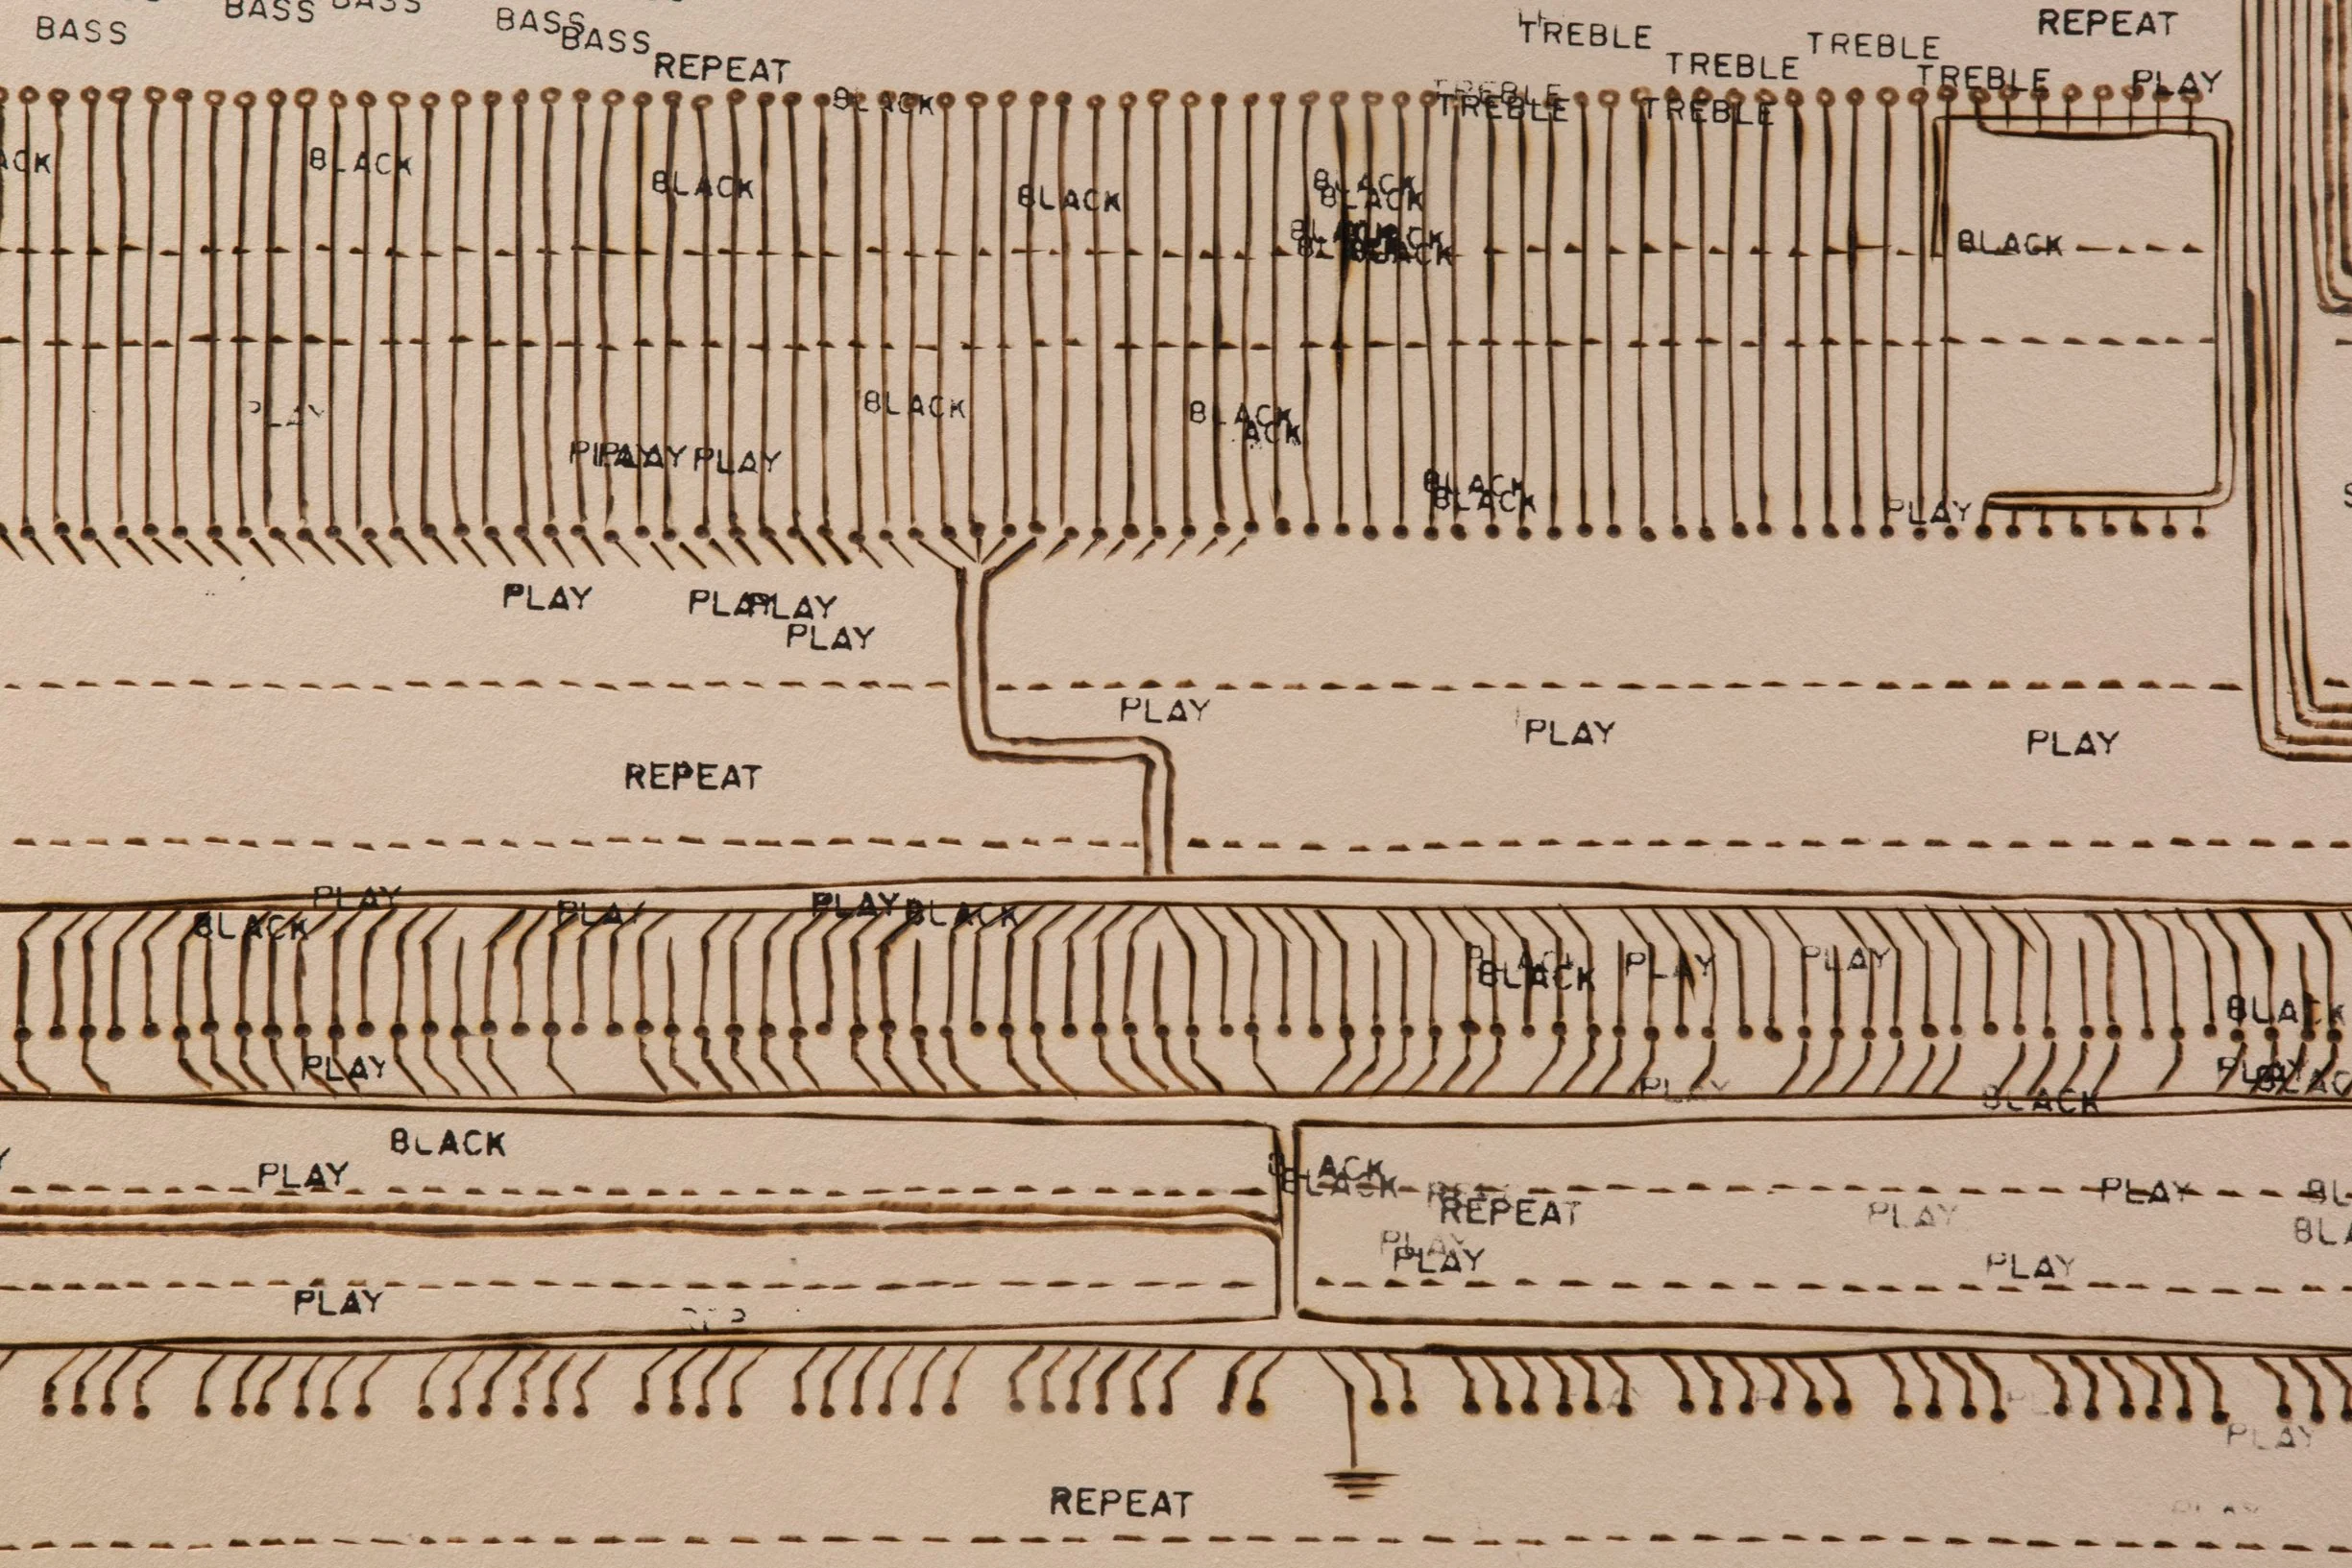 BASS BASS BASS BASS
BASS
REPEAT
TREBLE TREBLE TREBLE REPEAT
TREBLE PLAY
BLACK TREBLE TREBLE TREBLE
BLACK BLACK BLACK BLACK
BLACK
BLACK
BLACK
BLACK BLACK
PLAY
PLAY
BLACK
BLACK
PLAY
PLAY PLAY PLAY
PLAY
PLAY PLAY PLAY
REPEAT
PLAY PLAY PLAY BLACK
BLACK
PLAY PLAY
BLACK
BLACK
PLAY
PLAY
BLACK
BLACK
PLAY
BLACK
PLAY
REPEAT PLAY
PLAY
PLAY PLAY
PLAY
PLAY
REPEAT